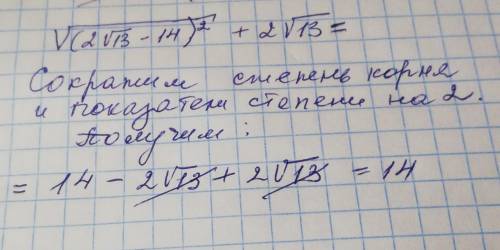 √(2√13 - 14)² + 2√13 =
Сократим степень корня
и показатели степени на 2.
Получим:
= 14 - 2√13 + 2√13 = 14